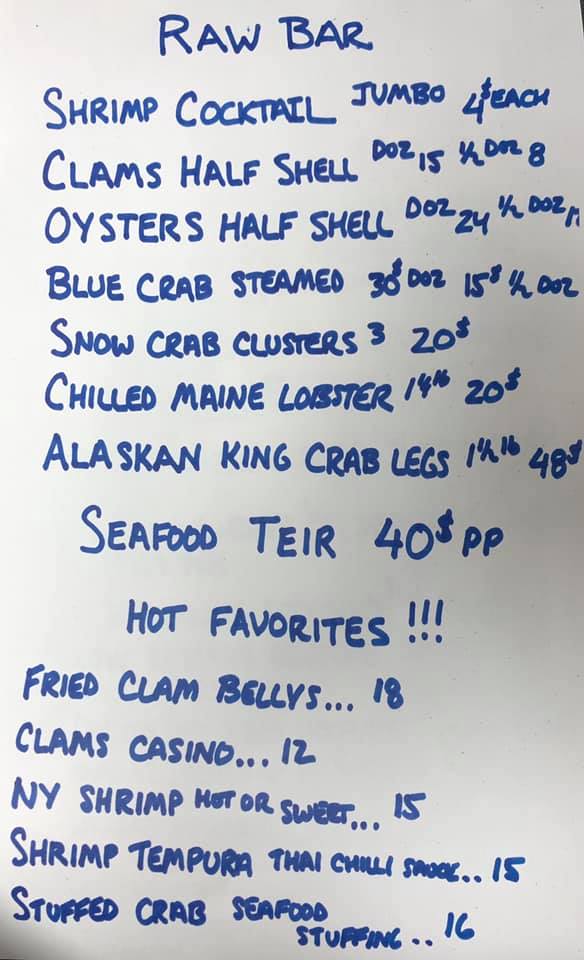 RAW BAR
SHRIMP COCKTAIL JUMBO 4$ EACH
CLAMS HALF SHELL DOZ 15 ½ DOZ 8
OYSTERS HALF SHELL DOZ 24 ½ DOZ
BLUE CRAB STEAMED 30$ DOZ 15$ ½ DOZ
SNOW CRAB CLUSTERS 3 20$
CHILLED MAINE LOBSTER 20$
ALASKAN KING CRAB LEGS 48$
SEAFOOD TEIR 40$ PP
HOT FAVORITES !!!
FRIED CLAM BELLYS... 18
CLAMS CASINO... 12
NY SHRIMP HOT OR SWEET... 15
SHRIMP TEMPURA THAI CHILLI SAUCE.. 15
STUFFED CRAB SEAFOOD
STUFFING.. 16